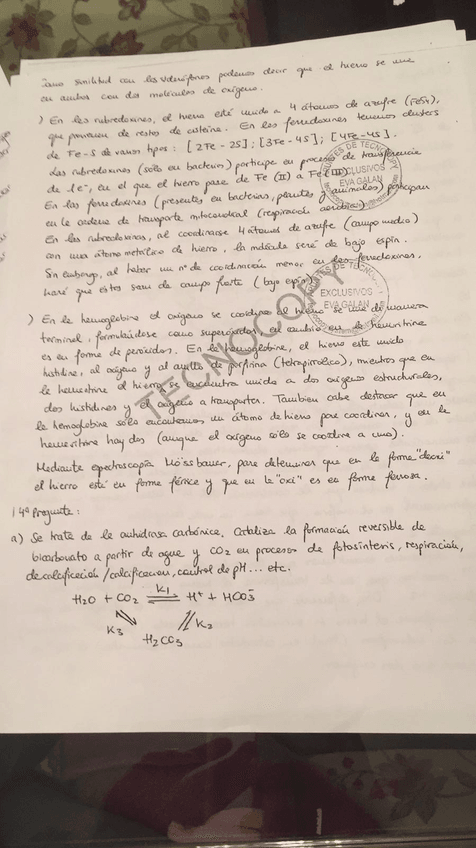 similitud con las podemos decir que el hierro se une
en ambos con dos moléculas de oxígeno.
) En las rubredoxinas, el hierro esté unido a 4 átomos de azufre (FeS4),
que provienen de restos de cisteína. En las ferredoxinas tenemos clusters
de Fe-S de varios tipos: [2Fe-2S]; [3Fe-4S]; [4Fe-4S].
Las rubredoxinas (sólo en bacterias) participa en procesos de transferencia
de 1e-, en el que el hierro pasa de Fe(II) a Fe(III).
En las ferredoxinas (presentes en bacterias, plantas y animales) participan
en la cadena de transporte mitocondrial (respiración aerobia).
En las rubredoxinas, al coordinarse 4 átomos de azufre (campo medio)
con un átomo metálico de hierro, la molécula será de bajo espín.
Sin embargo, al haber un nº de coordinación menor en las ferredoxinas,
hará que estas sean de campo fuerte (bajo espín).
) En la hemoglobina el oxígeno se coordina al hierro se une de manera
terminal, formulándose como superóxido, el cambio en la hemeritrina
es en forma de peróxidos. En la hemoglobina, el hierro esté unido
histidina, al oxígeno y al anillo de porfirina (tetrapirrólico), mientras que en
la hemeritrina el hierro se encuentra unido a dos oxígenos estructurales,
dos histidinas y el oxígeno a transportar. Tambien cabe destacar que en
la hemoglobina sólo encontramos un átomo de hierro para coordinar, y en la
hemeritrina hay dos (aunque el oxígeno sólo se coordina a uno).
Mediante espectroscopía Mössbauer, para determinar que en la forma "deoxi"
el hierro esté en forma férrica y que en la "oxi" es en forma ferrosa.
14ª Pregunta:
a) Se trata de la anhidrasa carbónica. Cataliza la formación reversible de
bicarbonato a partir de agua y CO2 en procesos de fotosíntesis, respiración,
decalcificación/calcificación, control de pH... etc.
H2O + CO2 ⇌ K1 H+ + HCO3-
K3 K2
H2CO3
TECNOCOPY
EXCLUSIVOS
EVA GALAN
EXCLUSIVOS
EVA GALAN